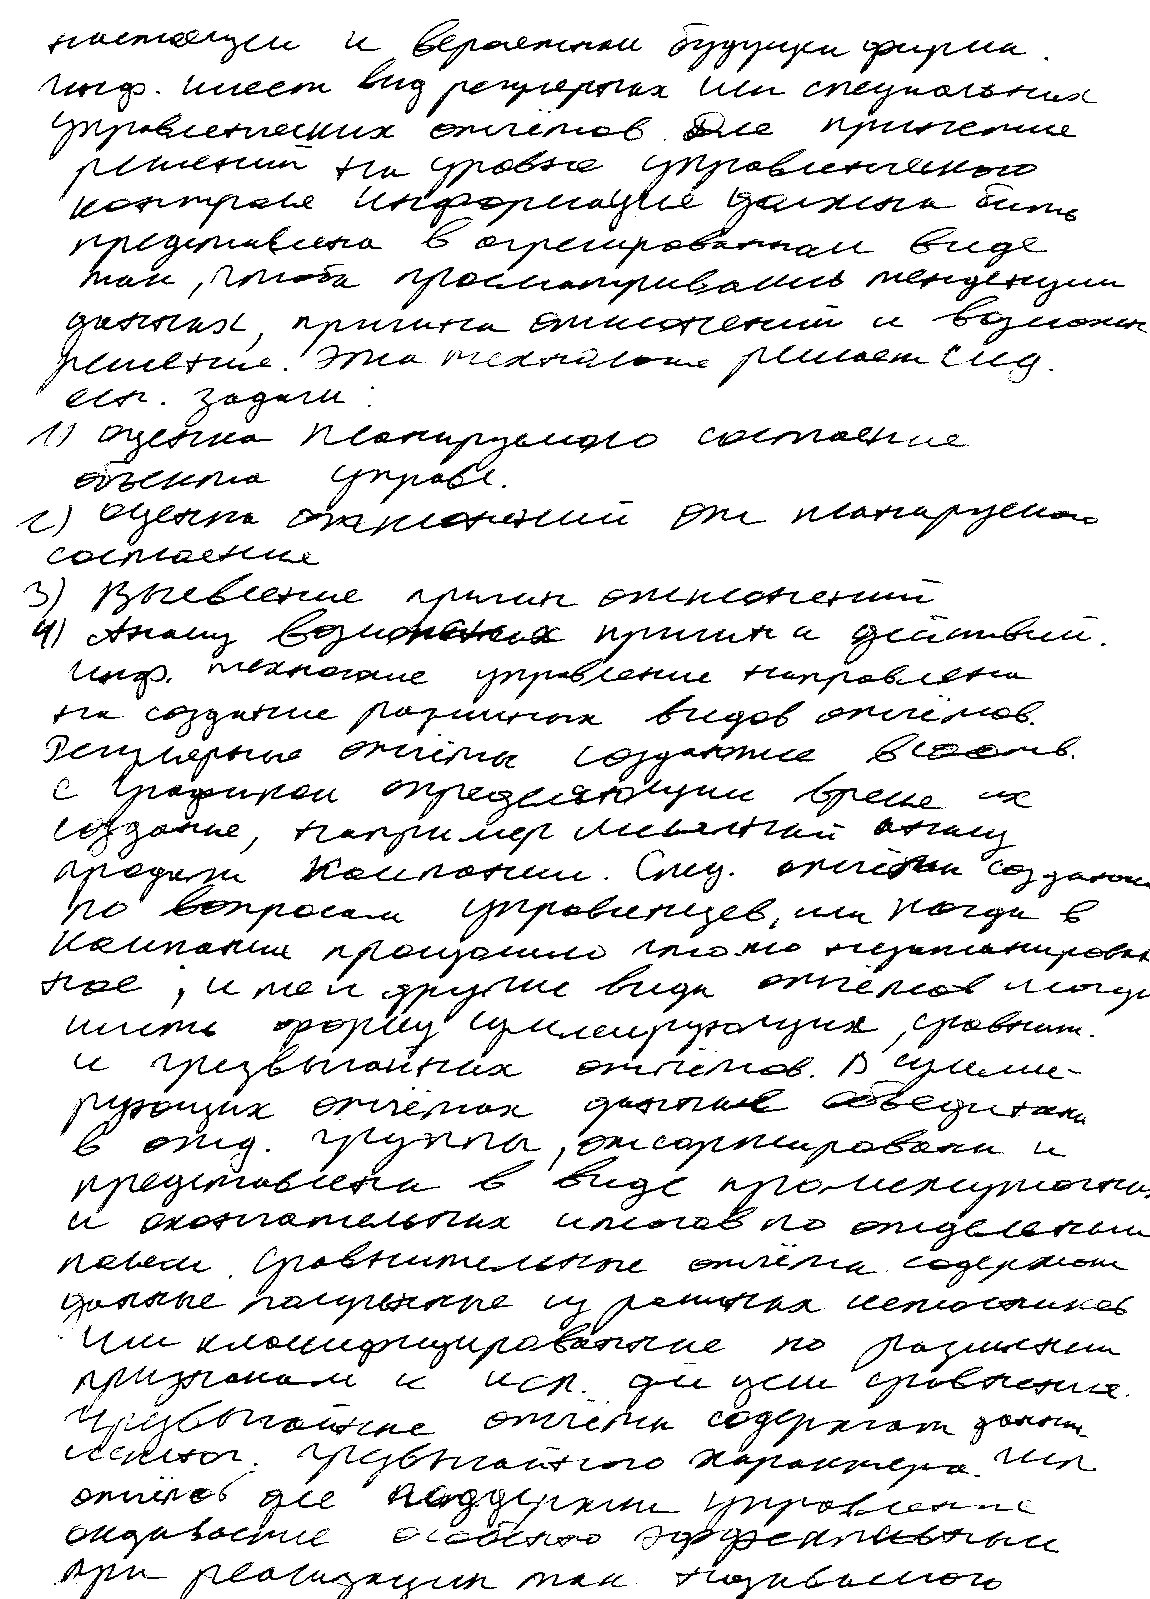 настоящем и вероятном будущем фирмы.
Инф. имеет вид регулярных или специальных
управленческих отчётов. Для принятие
решений на уровне управленческого
контроля информация должна быть
представлена в агрегированном виде
так, чтобы просматривались тенденции
данных, причины отклонений и возможн
решение. Эта технология решает след.
осн. задачи:
1) Оценка планируемого состояние
объекта управл.
2) Оценка отклонений от планируемого
состояние
3) Выявление причин отклонений
4) Анализ возможных причин и действий.
Инф. технология управление направлена
на создание различных видов отчётов.
Регулярные отчёты создаются в соотв.
с графиком определяющим время их
создание, например месячный анализ
продаж компании. Спец. отчёты создают
по вопросам управленцев, или когда в
компании произошло что-то незапланирован
ное; и те и другие виды отчётов могут
иметь форму суммирующих, сравнит.
и чрезвычайных отчётов. В сумми-
рующих отчётах данные объединены
в отд. группы, отсортированы и
представлены в виде промежуточных
и окончательных итогов по отдельным
полям. Сравнительные отчёты содержат
данные полученные из разных источников
или классифицированные по различным
признакам и исп. для цели сравнение.
Чрезвычайные отчёты содержат данные
исключ. чрезвычайного характера. Исп
отчётов для поддержки управление
оказывается особенно эффективным
при реализации так называемого